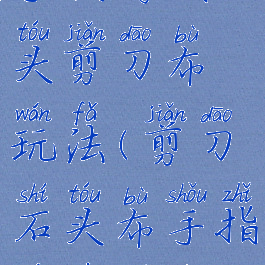 tóu jiǎn dāo bù
头剪刀布
wán fǎ jiǎn dāo
玩法(剪刀
shí tóu bù shǒu zhǐ
石头布手指